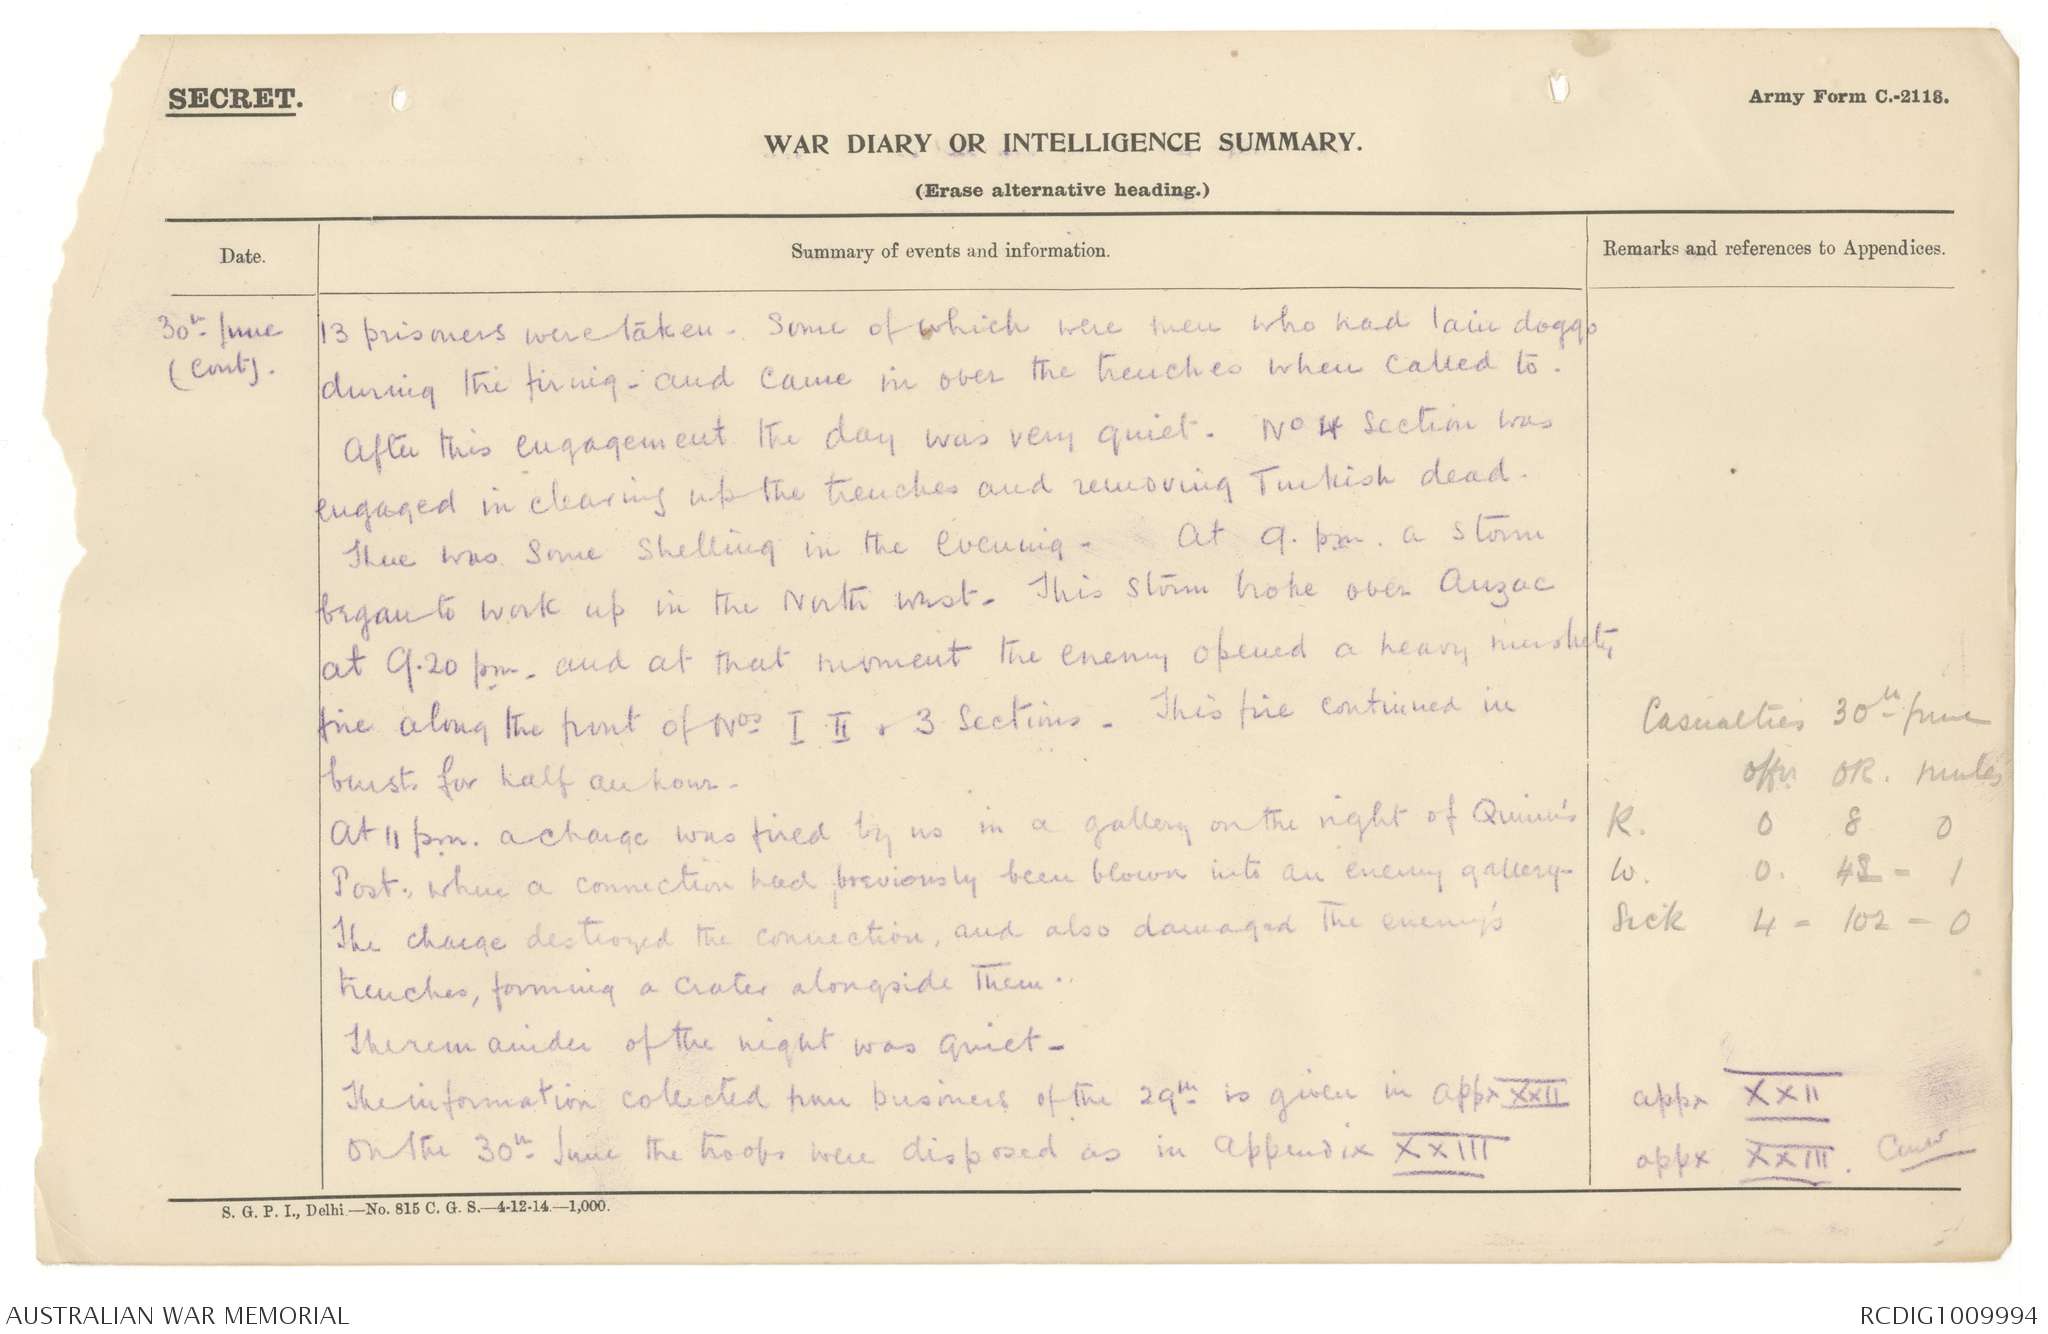 SECRET.
Army Form C.-2118.
WAR DIARY OR INTELLIGENCE SUMMARY.
(Erase alternative heading.)
Date.
Summary of events and information.
Remarks and references to Appendices.
30th June
(Cont).
13 prisoners were taken - Some of which were men who had lain doggo
during the firing - and came in over the trenches when called to.
After this engagement the day was very quiet. No 4 Section was
engaged in clearing up the trenches and removing Turkish dead.
There was some shelling in the evening - At 9. pm. a storm
began to work up in the North west - This storm broke over Anzac
at 9.20 pm - and at that moment the enemy opened a heavy musketry
fire along the front of Nos I II & 3 Sections - This fire continued in
bursts for half an hour -
At 11 pm. a charge was fired by us in a gallery on the right of Quinn's
Post, where a connection had previously been blown into an enemy gallery -
The charge destroyed the connection, and also damaged the enemy's
trenches, forming a crater alongside them..
The remainder of the night was quiet -
The information collected from prisoners of the 29th is given in appx XXII
On the 30th June the troops were disposed as in Appendix XXIII
Casualties 30th June
offrs OR. mules
K. 0 8 0
W. 0. 43 - 1
Sick 4 - 102 - 0
appx XXII
appx XXIII.
S. G. P. I., Delhi.—No. 815 C. G. S.—4-12-14—1,000.
AUSTRALIAN WAR MEMORIAL
RCDIG1009994